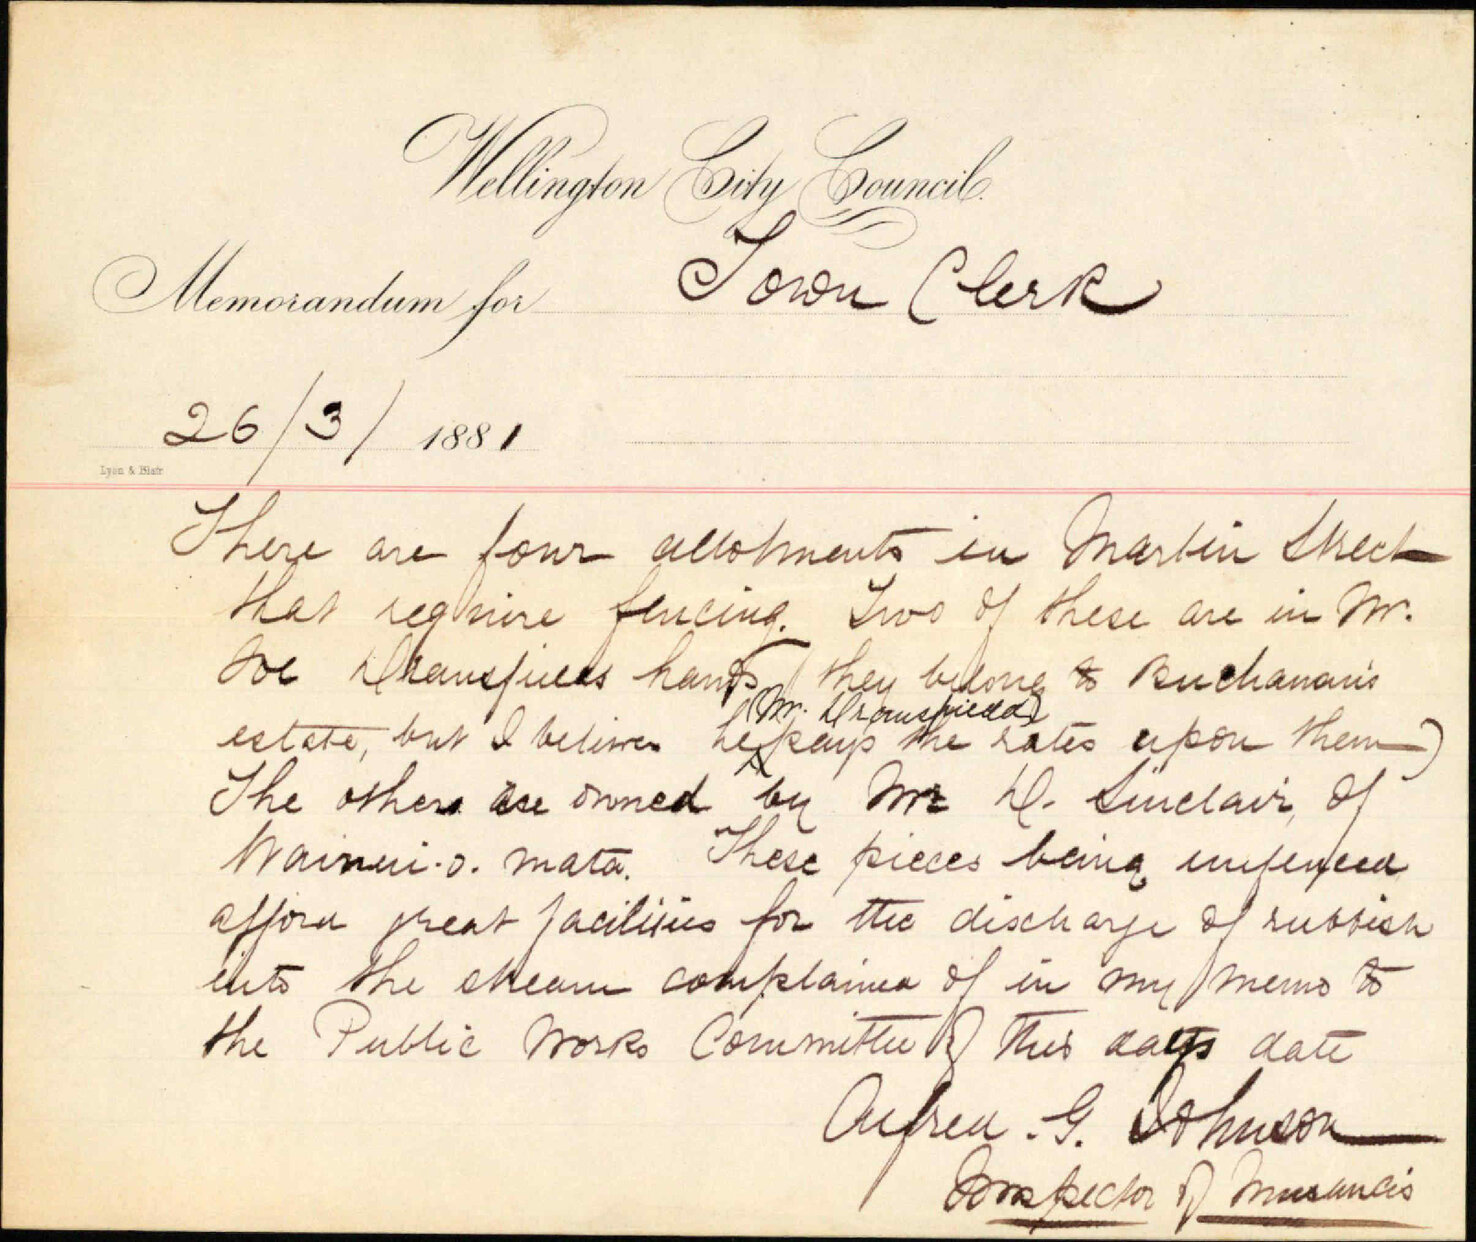 Wellington City Council.
Memorandum for Town Clerk
26/3/ 1881
Lyon & Blair
There are four allotments in Martin Street
that require fencing. Two of these are in Mr.
Joe Dransfields hands (they belong to Buchanan's
(Mr. Dransfield)
estate, but I believe he pays the rates upon them)
The others are owned by Mr D. Sinclair, of
Wainui.o.mata. These pieces being unfenced
afford great facilities for the discharge of rubbish
into the stream complained of in my memo to
the Public Works Committee of this days date
Alfred. G. Johnson
Inspector of Nuisances